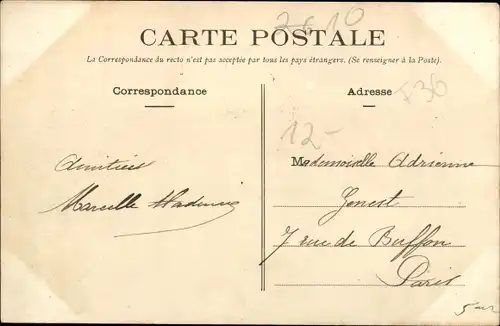 CARTE POSTALE
La Correspondance du recto n'est pas acceptée par tous les pays étrangers. (Se renseigner à la Poste).
Correspondance
Adresse
12-
Amitiés
Marcelle
Mademoiselle Adrienne
Genest
7 rue de Buffon
Paris